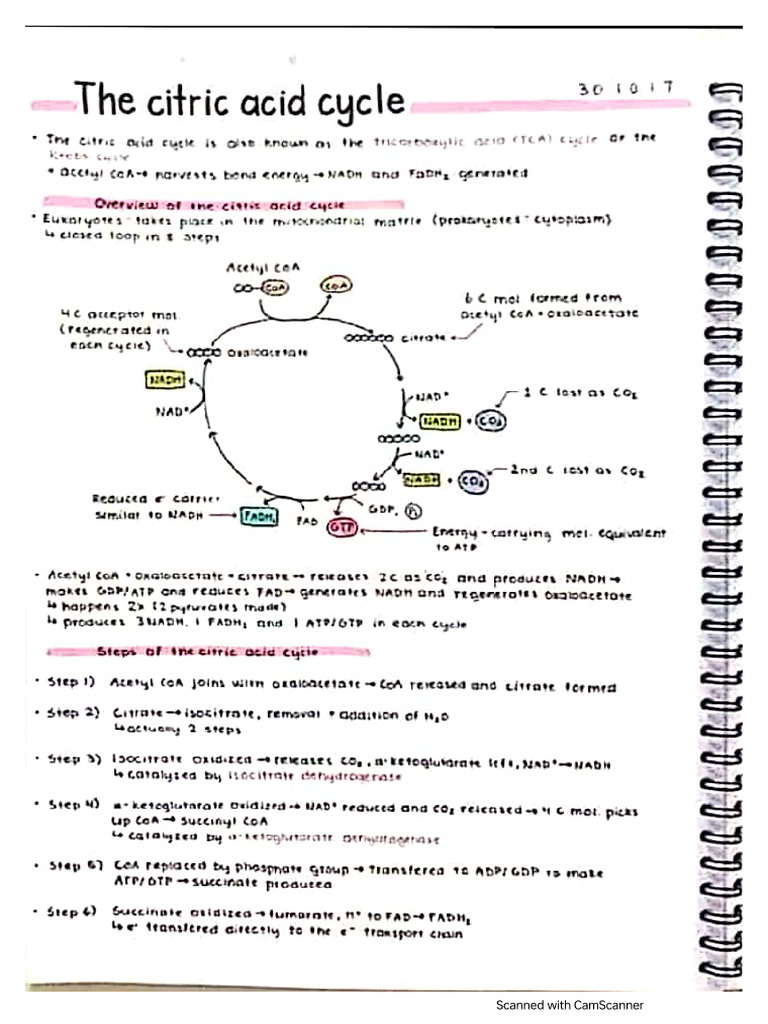 The citric acid cycle
30 10 17
• The citric acid cycle is also known as the tricarboxylic acid (TCA) cycle or the
Krebs cycle
• acetyl CoA → harvests bond energy → NADH and FADH₂ generated
Overview of the citric acid cycle
• Eukaryotes - takes place in the mitochondrial matrix (prokaryotes - cytoplasm)
↳ closed loop in 8 steps
Acetyl CoA
CoA
CoA
6 C mol formed from
acetyl CoA + oxaloacetate
4 C acceptor mol.
(regenerated in
each cycle)
oxaloacetate
citrate
NADH
NAD⁺
NAD⁺
NADH + CO₂
1 C lost as CO₂
NAD⁺
NADH + CO₂
2nd C lost as CO₂
Reduced e⁻ carrier
similar to NADH
FADH₂
FAD
GTP
GDP, Pᵢ
Energy-carrying mol. equivalent
to ATP
• Acetyl CoA + oxaloacetate → citrate → releases 2C as CO₂ and produces NADH →
makes GDP/ATP and reduces FAD → generates NADH and regenerates oxaloacetate
↳ happens 2x (2 pyruvates made)
↳ produces 3NADH, 1 FADH₂ and 1 ATP/GTP in each cycle
Steps of the citric acid cycle
• Step 1) Acetyl CoA joins with oxaloacetate → CoA released and citrate formed
• Step 2) Citrate → isocitrate, removal + addition of H₂O
↳ actually 2 steps
• Step 3) Isocitrate oxidized → releases CO₂, α-ketoglutarate left, NAD⁺ → NADH
↳ catalyzed by isocitrate dehydrogenase
• Step 4) α-ketoglutarate oxidized → NAD⁺ reduced and CO₂ released → 4 C mol. picks
up CoA → succinyl CoA
↳ catalyzed by α-ketoglutarate dehydrogenase
• Step 5) CoA replaced by phosphate group → transfered to ADP/GDP to make
ATP/GTP → succinate produced
• Step 6) Succinate oxidized → fumarate, H⁺ to FAD → FADH₂
↳ e⁻ transfered directly to the e⁻ transport chain
Scanned with CamScanner